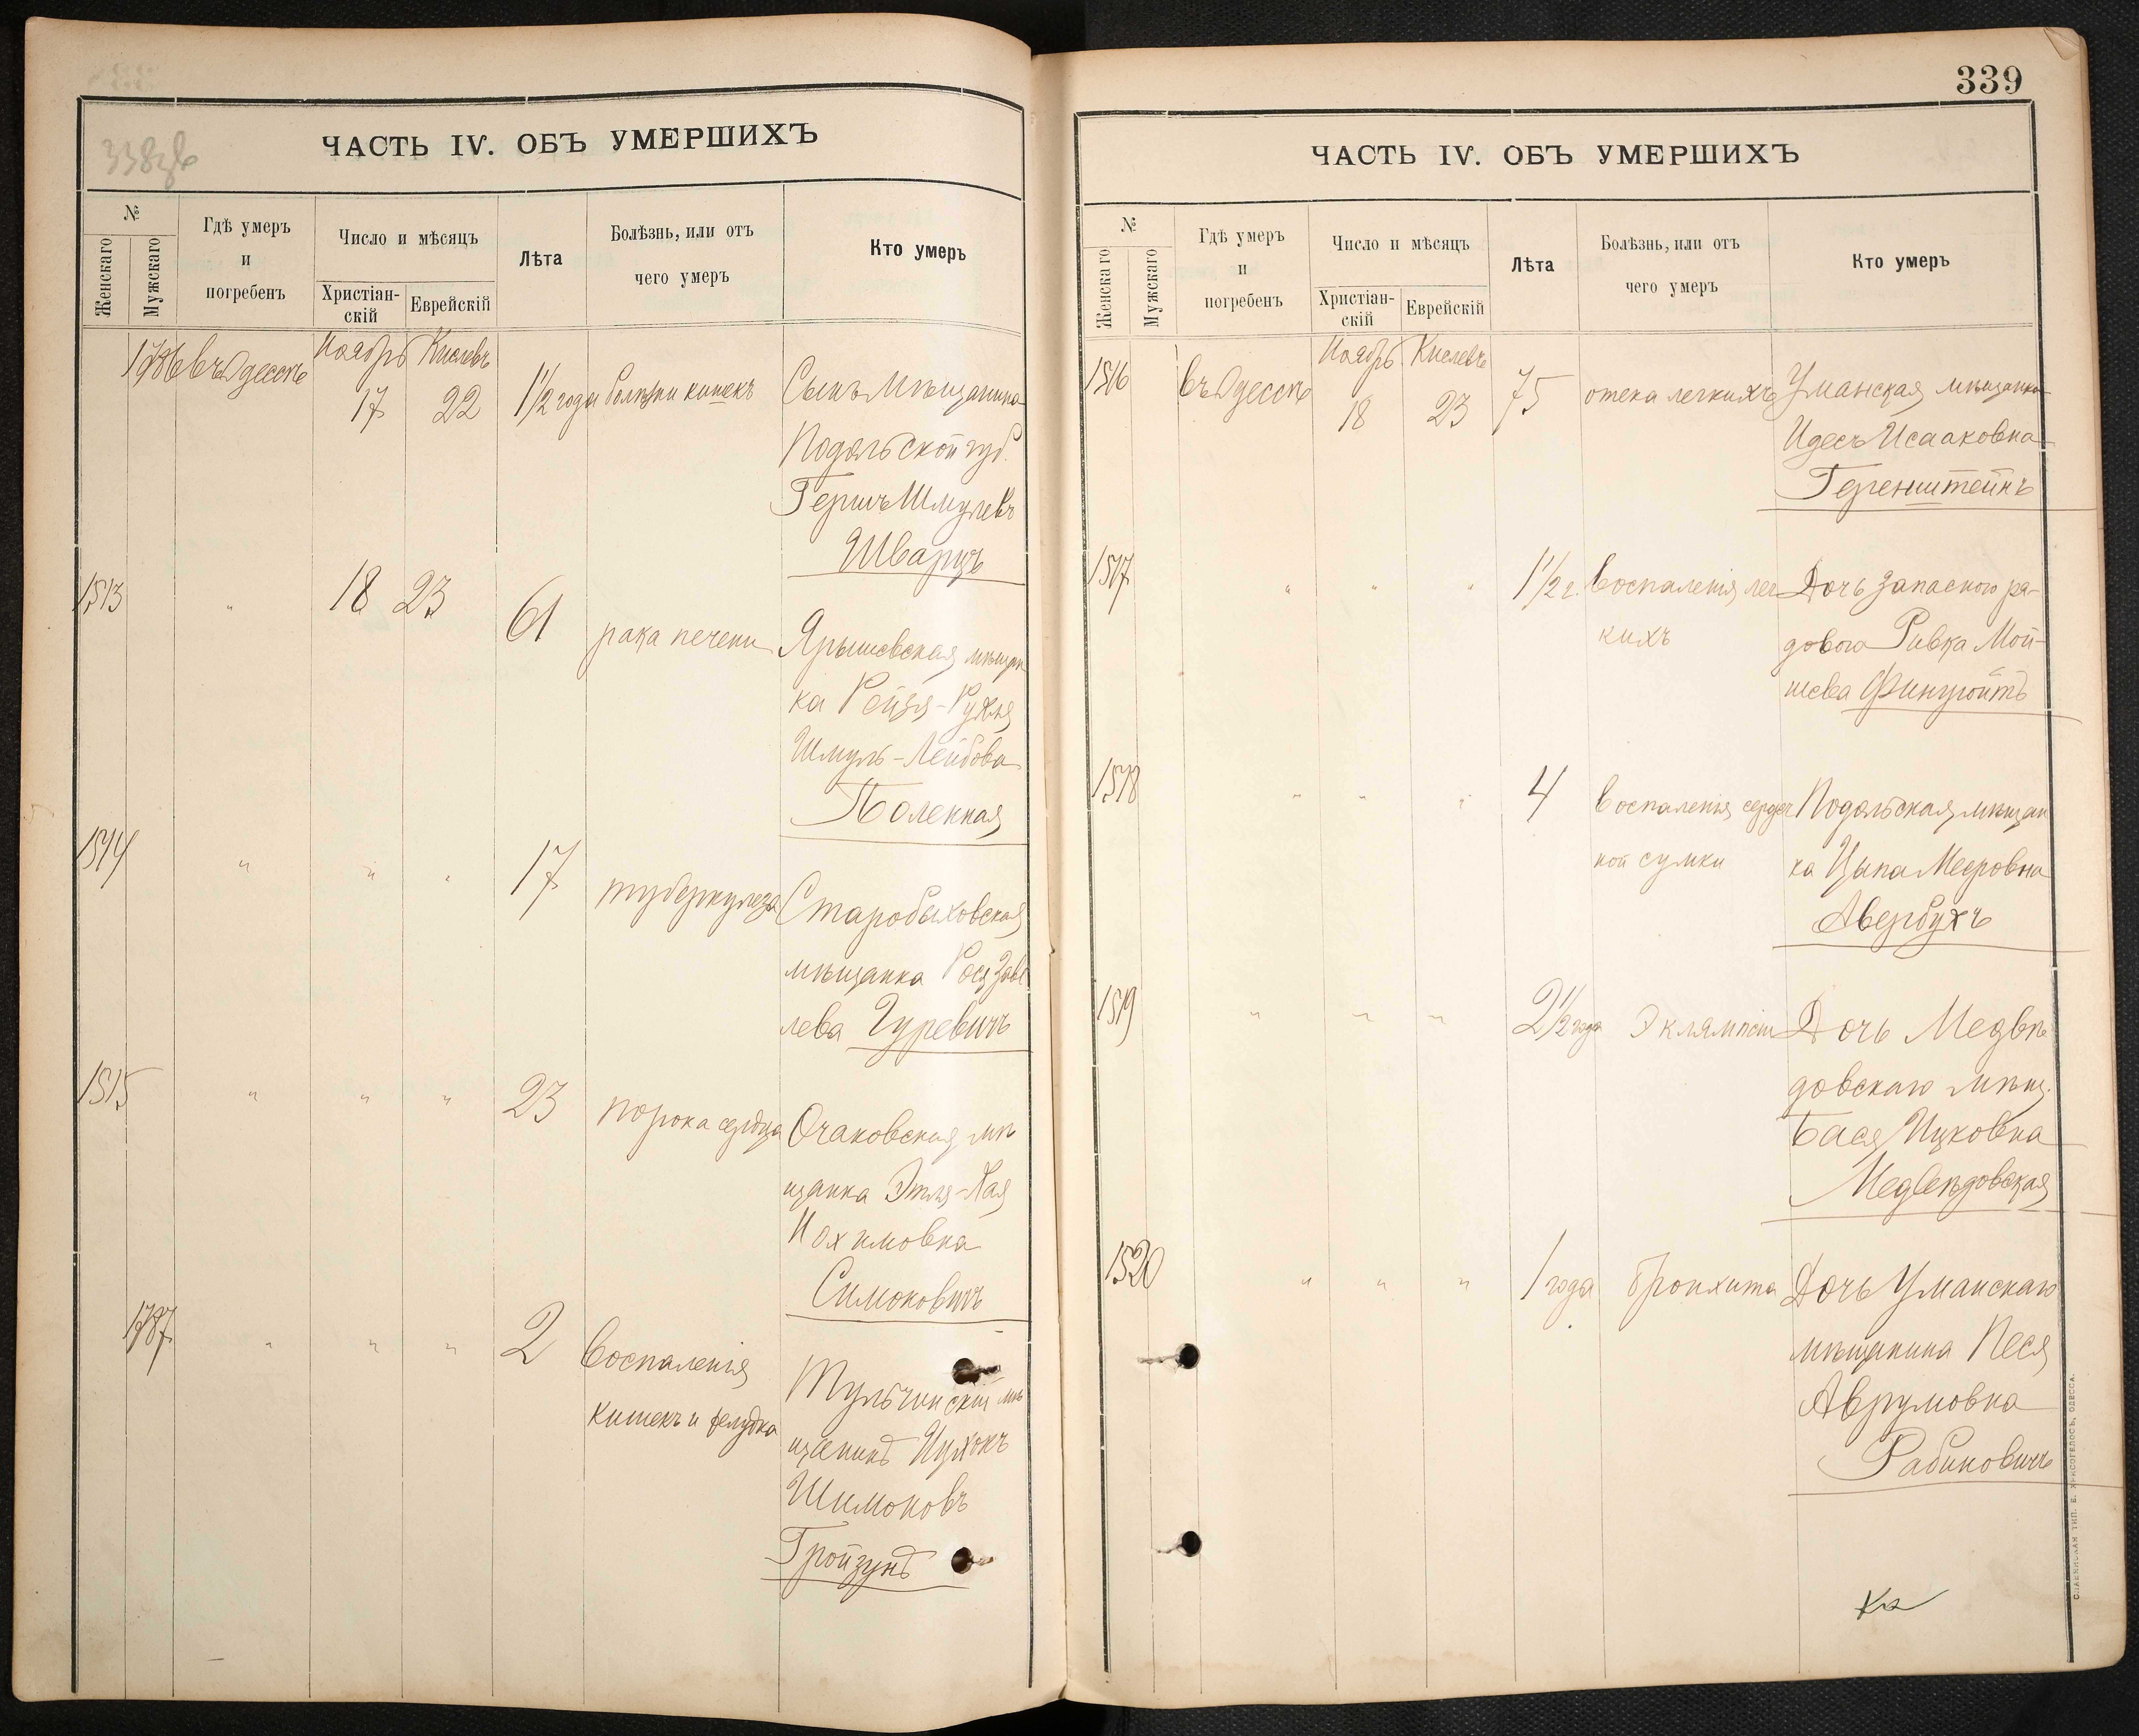 338
ЧАСТЬ IV. ОБЪ УМЕРШИХЪ
№
Женскаго
Мужскаго
Гдѣ умеръ
и
погребенъ
Число и мѣсяцъ
Христіан-
скій
Еврейскій
Лѣта
Болѣзнь, или отъ
чего умеръ
Кто умеръ
1786 въ Одессѣ Ноябрь 17 Кислевъ 22 1½ года болѣзни кишекъ Сынъ мѣщанина
Подольской губ.
Гершъ Шмулевъ
Шварцъ
1513 " 18 23 61 рака печени Ярышевская мѣщан
ка Рейзя-Рухля
Шмуль-Лейбова
Поленная
1514 " " " 17 туберкулеза Старобыховская
мѣщанка Рося Завѣ
лева Гуревичъ
1515 " " " 23 порока сердца Очаковская мѣ
щанка Этля-Хая
Нохимовна
Симоновичъ
1787 " " " 2 воспаленія
кишекъ и желудка
Тульчинскій мѣ
щанинъ Ицхокъ
Шимоновъ
Гройзунд
339
ЧАСТЬ IV. ОБЪ УМЕРШИХЪ
№
Женскаго
Мужскаго
Гдѣ умеръ
и
погребенъ
Число и мѣсяцъ
Христіан-
скій
Еврейскій
Лѣта
Болѣзнь, или отъ
чего умеръ
Кто умеръ
1516 въ Одессѣ Ноябрь 18 Кислевъ 23 75 отека легкихъ Уманская мѣщанка
Идесъ Исааковна
Геренштейнъ
1517 " " " 1½ г. воспаленія лег Дочь запаснаго ря-
кихъ довога Ривка Мой-
шева Фингойтъ
1518 " " " 4 воспаленія сердеч Подольская мѣщан
ной сумки ка Цыпа Мееровна
Авербухъ
1519 " " " 2½ года Эклямпсіи Дочь Медвѣ
довскаго мѣщ.
Бася Ицковна
Медвѣдовская
1520 " " " 1 года бронхита Дочь Уманскаго
мѣщанина Песя
Аврумовна
Рабиновичъ
СЛАВЯНСКАЯ ТИП. Е. ХРИСОГЕЛОСЪ, ОДЕССА.